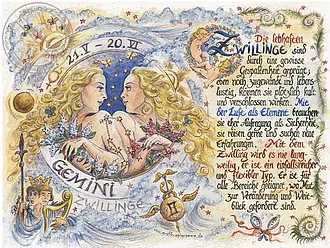 21.V - 20.VI
GEMINI
ZWILLINGE
Die lebhaften
ZWILLINGE sind
durch eine gewisse
Gespaltenheit geprägt,
eben noch zugewandt und lebens-
lustig, können sie plötzlich kalt
und verschlossen wirken. Mit
der Luft als Element brauchen
sie eher Aufregung als Sicherheit,
sie reisen gerne und suchen neue
Erfahrungen. Mit dem
Zwilling wird es nie lang-
weilig, er ist ein einfallsreicher
und flexibler Typ. Er ist für
alle Bereiche geeignet, wo Mut
zur Veränderung und Weit-
blick gefordert sind.